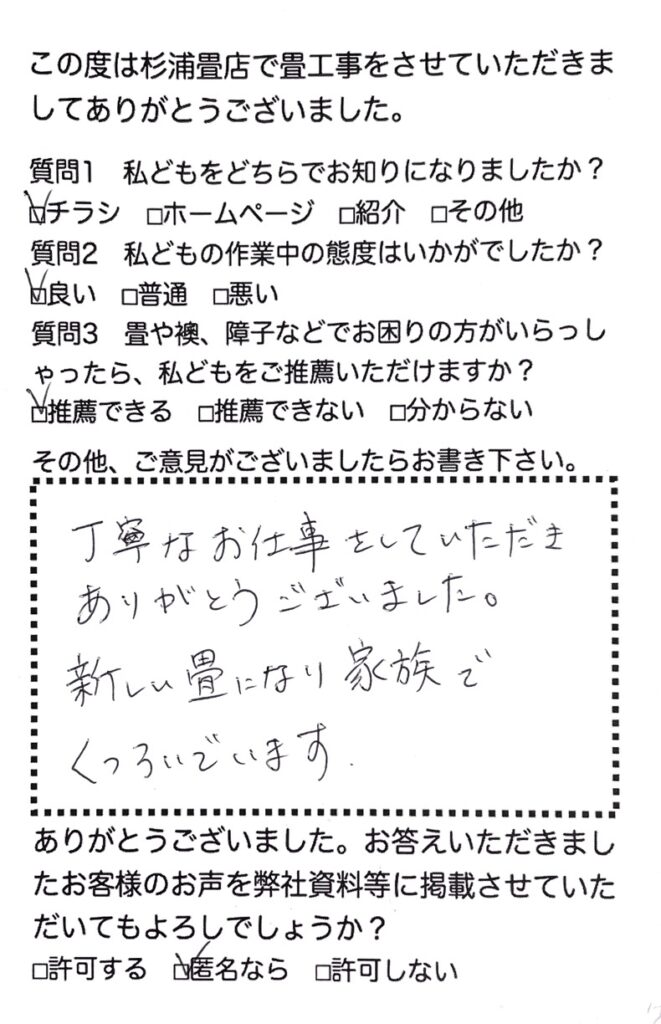 この度は杉浦畳店で畳工事をさせていただきま
してありがとうございました。
質問1 私どもをどちらでお知りになりましたか？
☑チラシ □ホームページ □紹介 □その他
質問2 私どもの作業中の態度はいかがでしたか？
☑良い □普通 □悪い
質問3 畳や襖、障子などでお困りの方がいらっし
ゃったら、私どもをご推薦いただけますか？
☑推薦できる □推薦できない □分からない
その他、ご意見がございましたらお書き下さい。
丁寧なお仕事をしていただき
ありがとうございました。
新しい畳になり家族で
くつろいでいます.
ありがとうございました。お答えいただきまし
たお客様のお声を弊社資料等に掲載させていた
だいてもよろしでしょうか？
□許可する ☑匿名なら □許可しない